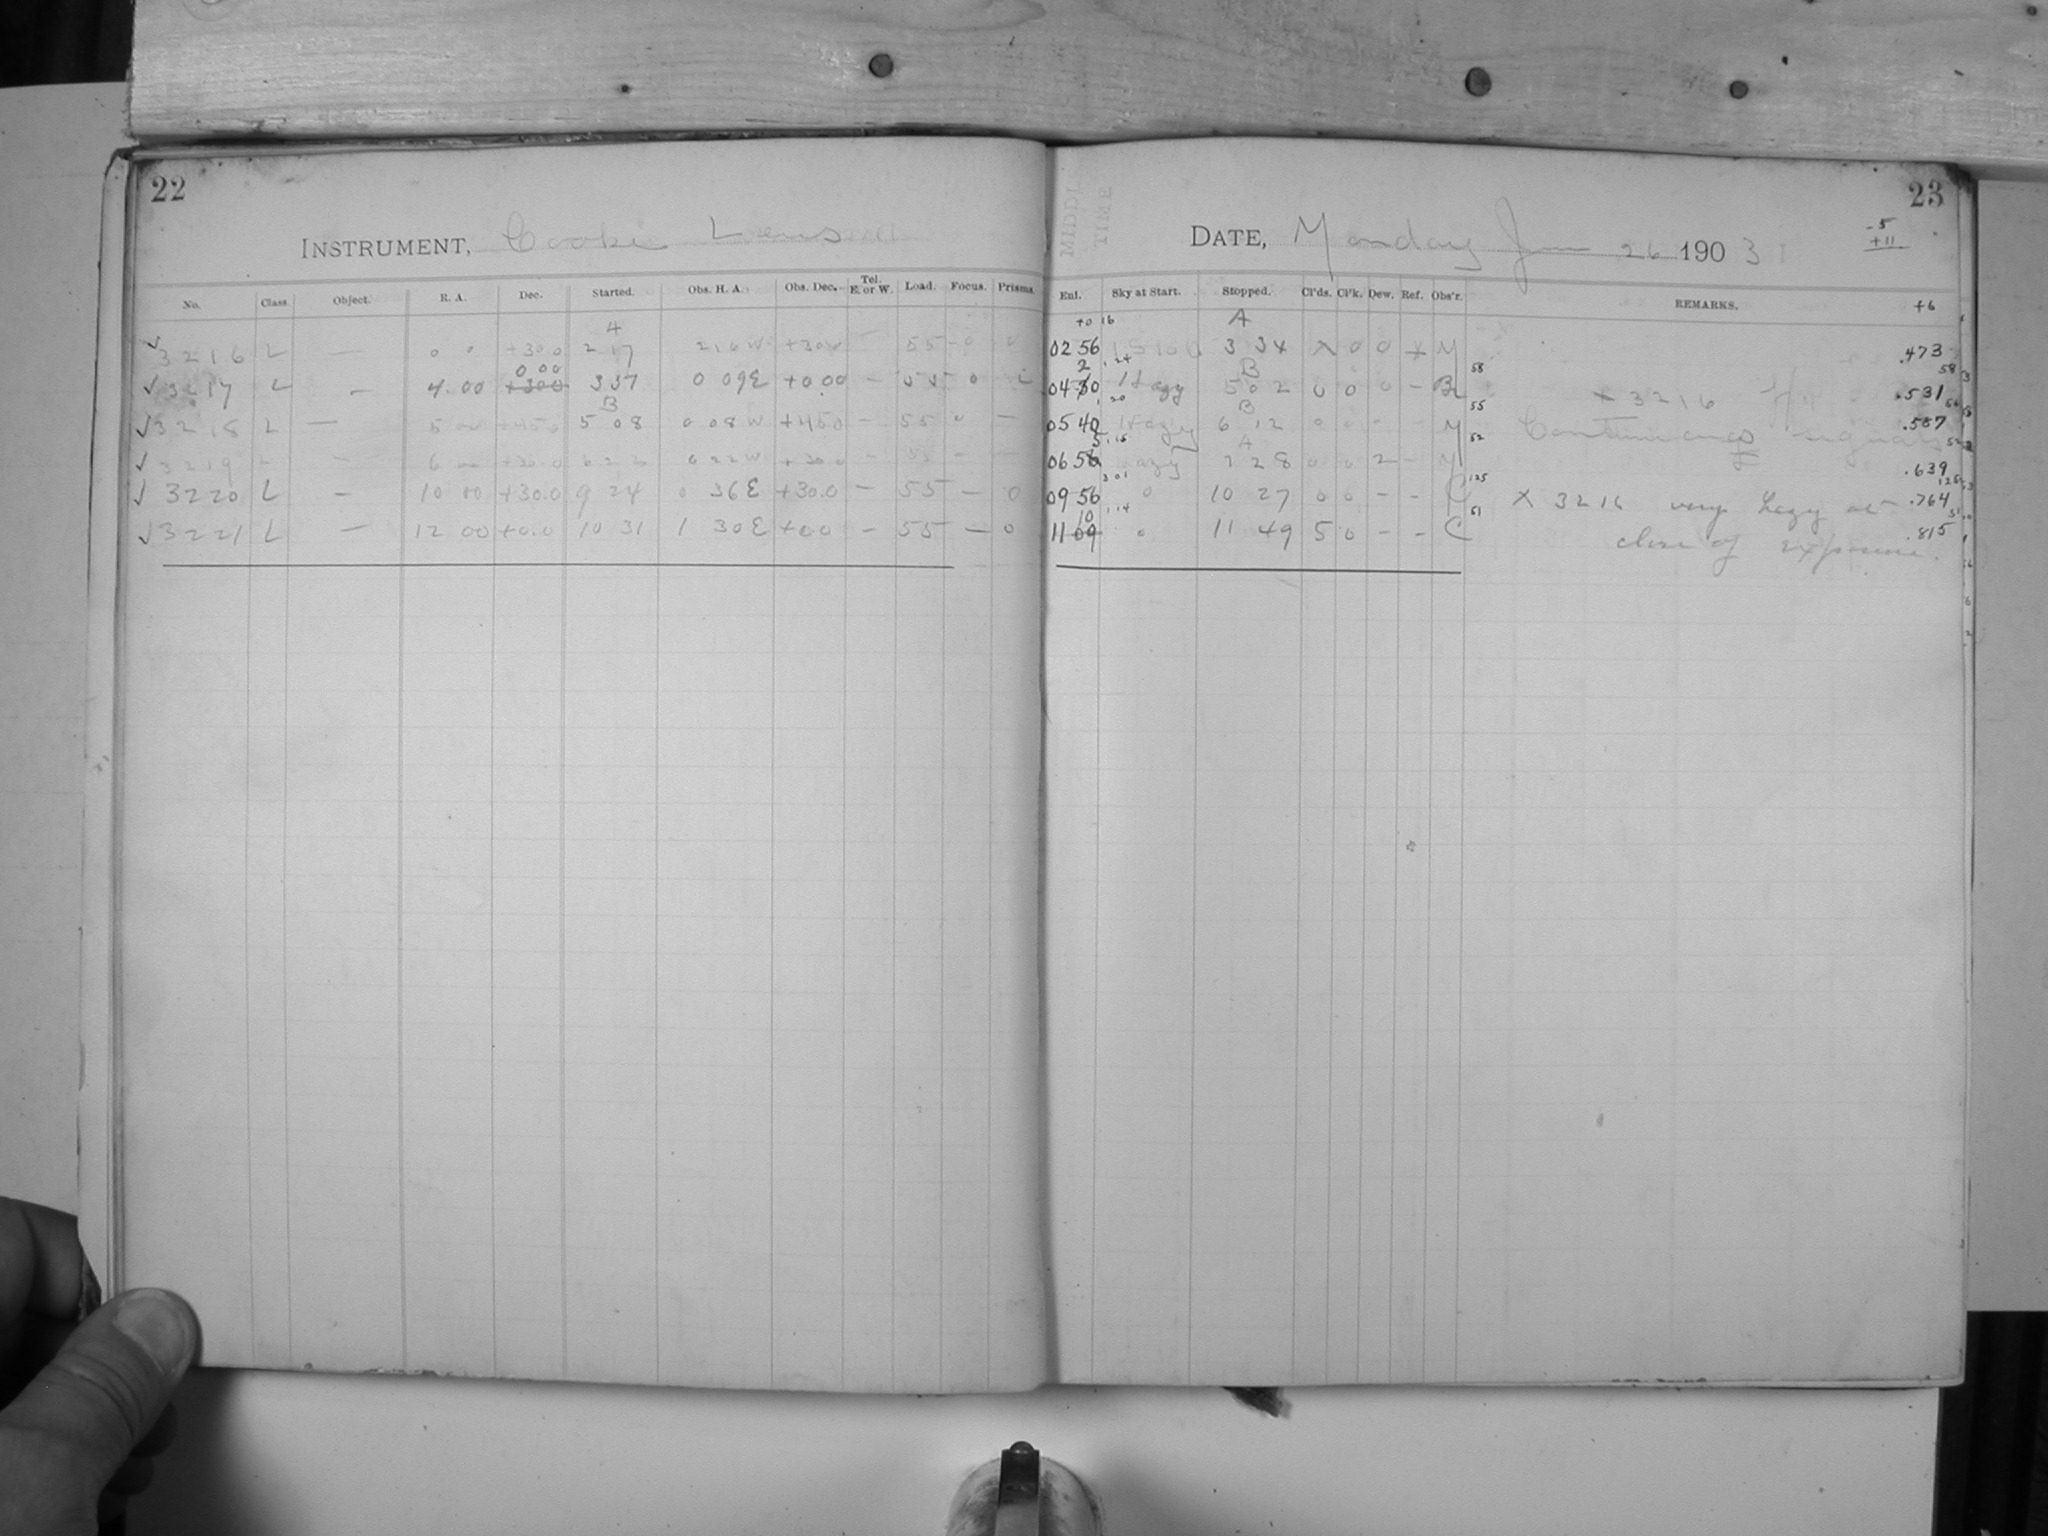 22
INSTRUMENT, Cooke Lens
No. Class. Object. R. A. Dec. Started. Obs. H. A. Obs. Dec. Tel. E. or W. Load. Focus. Prisms.
4
✓ 3216 L — 0 0 +30.0 2 17 2 16 W +30.0 — 55 - 0
0 00
✓ 3217 L — 4 00 +30.0 3 37 0 09 E +0.00 — 55 0
B
✓ 3218 L — 5 00 +45.0 5 08 0 08 W +45.0 — 55 0 —
✓ 3219 L — 6 00 +30.0 6 22 0 22 W +30.0 — 55 — —
✓ 3220 L — 10 00 +30.0 9 24 0 36 E +30.0 — 55 — 0
✓ 3221 L — 12 00 +0.0 10 31 1 30 E +0.0 — 55 — 0
23
MIDDL
TIME
DATE, Monday 26 1903
-5
+11
+6
Enl. Sky at Start. Stopped. Cl'ds. Cl'k. Dew. Ref. Obs'r. REMARKS.
+0 16 A
02 56 3 34 X 0 0 X M .473
2 .24 B 58 58
04 30 Hazy 5 02 0 0 0 - X 3216 .531
.20 B 55
05 40 Hazy 6 12 0 0 - - M .587
5 .15 A 52 signals
06 56 Hazy 7 28 0 0 2 - M .639
301 125 125
09 56 0 10 27 0 0 - - C X 3216 very hazy at .764
10 .14 51 51
11 09 0 11 49 5 0 - - C close of exposure. .815